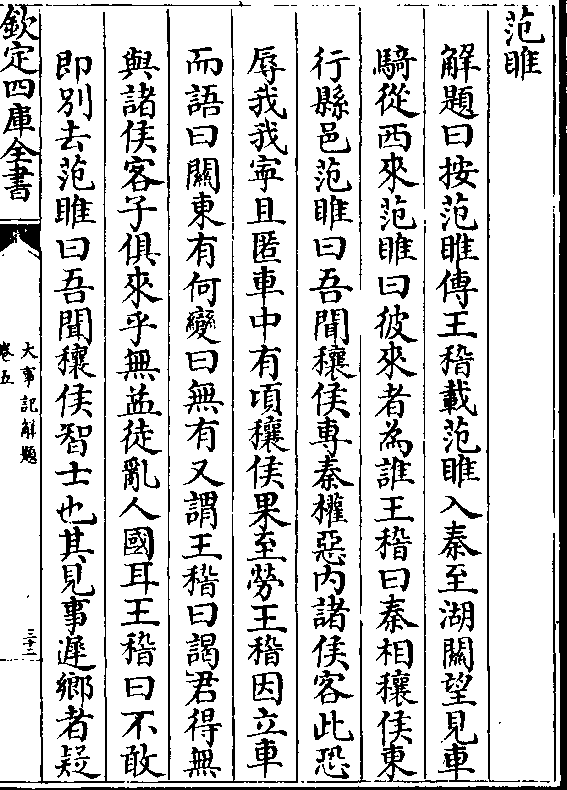 范睢
解題曰按范睢傳王稽載范睢入秦至湖關望見車
騎從西來范睢曰彼來者為誰王稽曰秦相穰侯東
行縣邑范睢曰吾聞穰侯專秦權惡内諸侯客此恐
辱我我寜且匿車中有頃穰侯果至勞王稽因立車
而語曰關東有何變曰無有又謂王稽曰謁君得無
與諸侯客子俱來乎無益徒亂人國耳王稽曰不敢
即別去范睢曰吾聞穰侯智士也其見事遲鄉者疑
欽定四庫全書
大事記解題
卷五
三十二